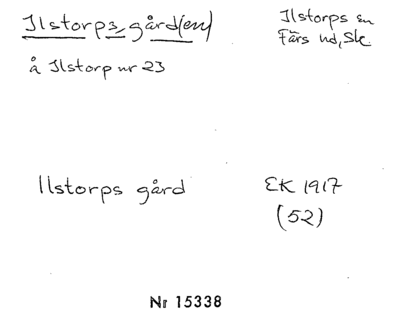 Ilstorps gård(en)
Ilstorps sn
Färs hd, Sk.
å Ilstorp nr 23
Ilstorps gård
EK 1917
(52)
Nr 15338